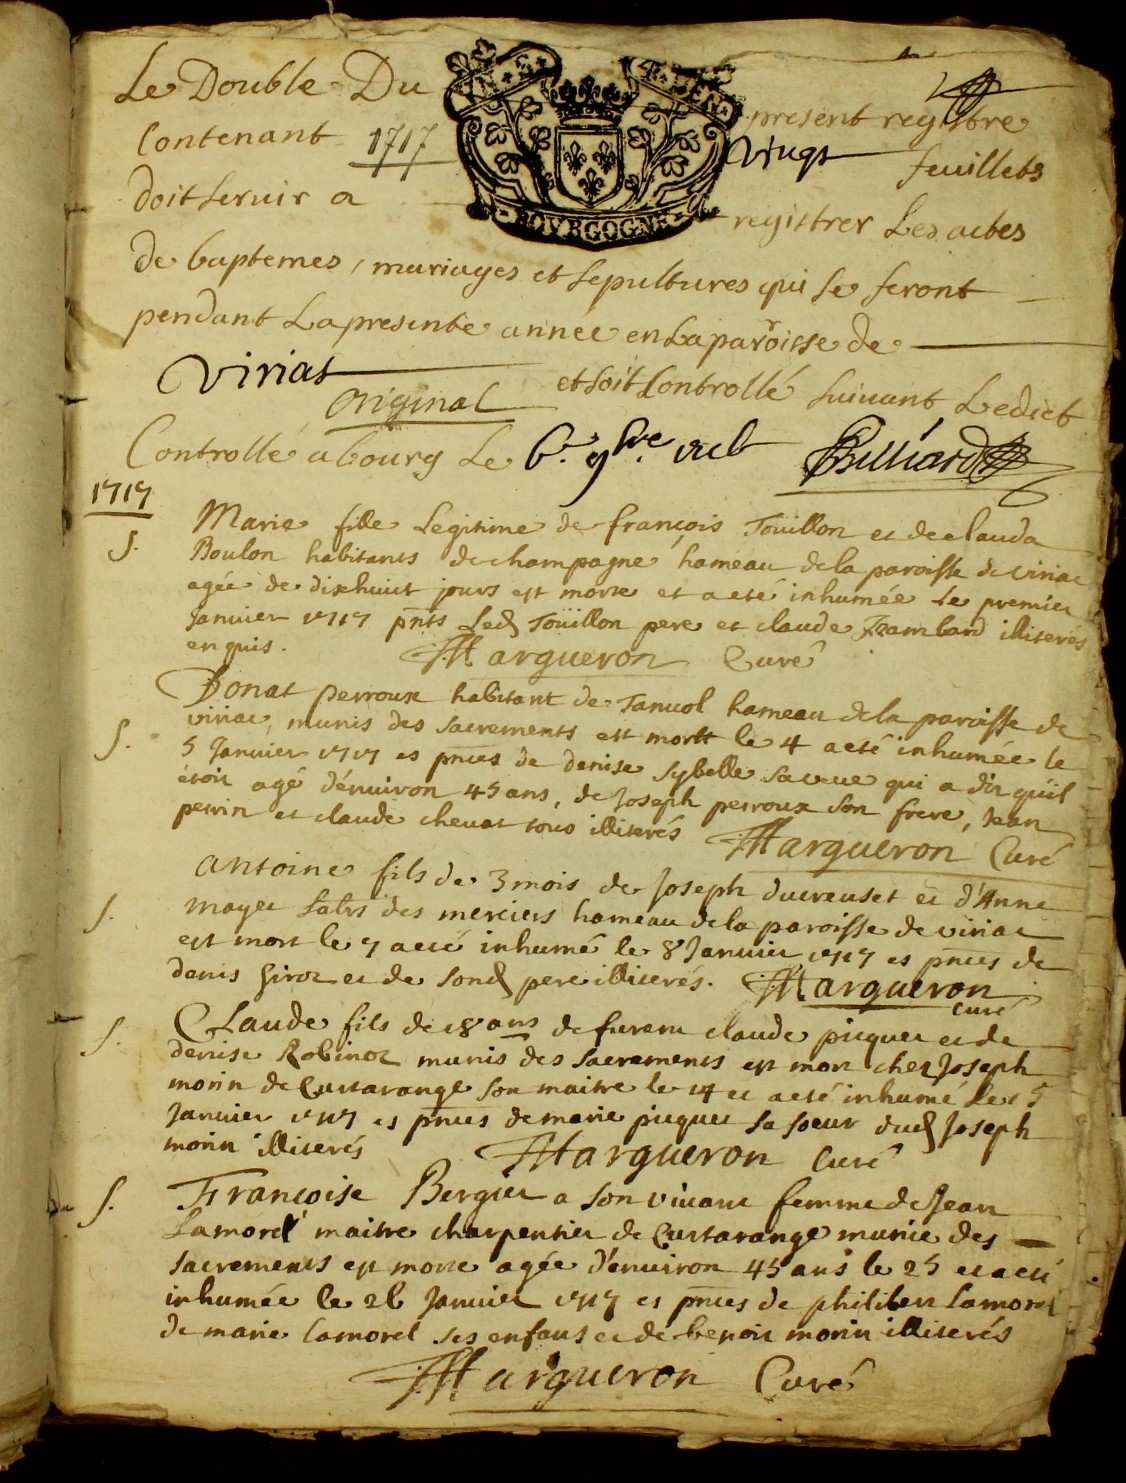 Le Double Du present registre
Contenant 1717 vingt feuillets
doit servir a registrer Les actes
BOURGOGNE
de baptemes, mariages et sepultures qui se feront
pendant La presente année en La paroisse de
Viriat et soit Controllé suivant Ledict
Original
Controllé a bourg Le 6e 9bre Billiard
1717
S. Marie fille Legitime de françois Touillon et de clauda
Boulon habitants de champagne hameau de la paroisse de viriac
agée de dixhuict jours est morte et a eté inhumée le premier
Janvier 1717 pnts Led Touïllon pere et claude Frambard illiterés
enquis. Margueron Curé
S. Donat perroux habitant de Tanvol hameau de la paroisse de
viriac, munis des sacrements est mortt le 4 a eté inhumée le
5 Janvier 1717 es pnces de denise sybelle sa veue qui a dit qu'il
étoit agé d'énviron 45 ans, de Joseph perroux son frere, Jean
perrin et claude chevat tous illiterés Margueron Curé
S. Antoine fils de 3 mois de Joseph ducreuset et d'Anne
mayet des merciers hameau de la paroisse de viriac
est mort le 7 a eté inhumé le 8 Janvier 1717 es pnces de
denis Girot et de sond pere illiterés. Margueron
Curé
S. Claude fils de 18 ans de furent claude picquet et de
denise Robinot munis des sacrements est mort chez Joseph
morin de Curtarange son maitre le 14 et a eté inhumé le 15
Janvier 1717 es pnces de marie picquet sa soeur dud Joseph
morin illiterés Margueron Curé
S. Françoise Bergier a son vivant femme de Jean
Lamorel maitre charpentier de Curtarange munie des
sacrements est morte agée d'énviron 45 ans le 25 et a eté
inhumée le 26 Janvier 1717 es pnces de philibert Lamorel
de marie Lamorel ses enfans et de benoit morin illiterés
Margueron Curé